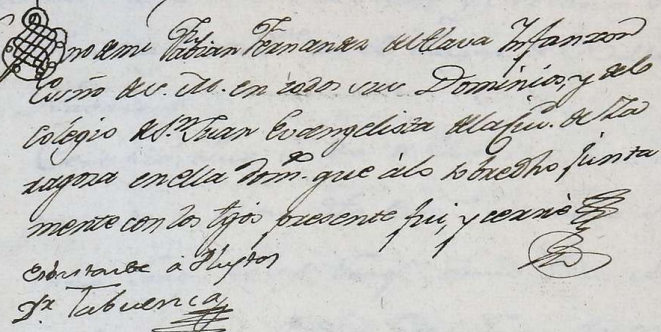 no de mi Fabian Fernandez de Clava Infanzon
Essno de S. M. en todos sus Dominios, y del
Colegio de Sn Juan Evangelista de la Ciu. de Za
ragoza en ella Dom.do que à lo sobredho junta
mente con los tgos presente fui, y cerrè
Dr. Tabuenca